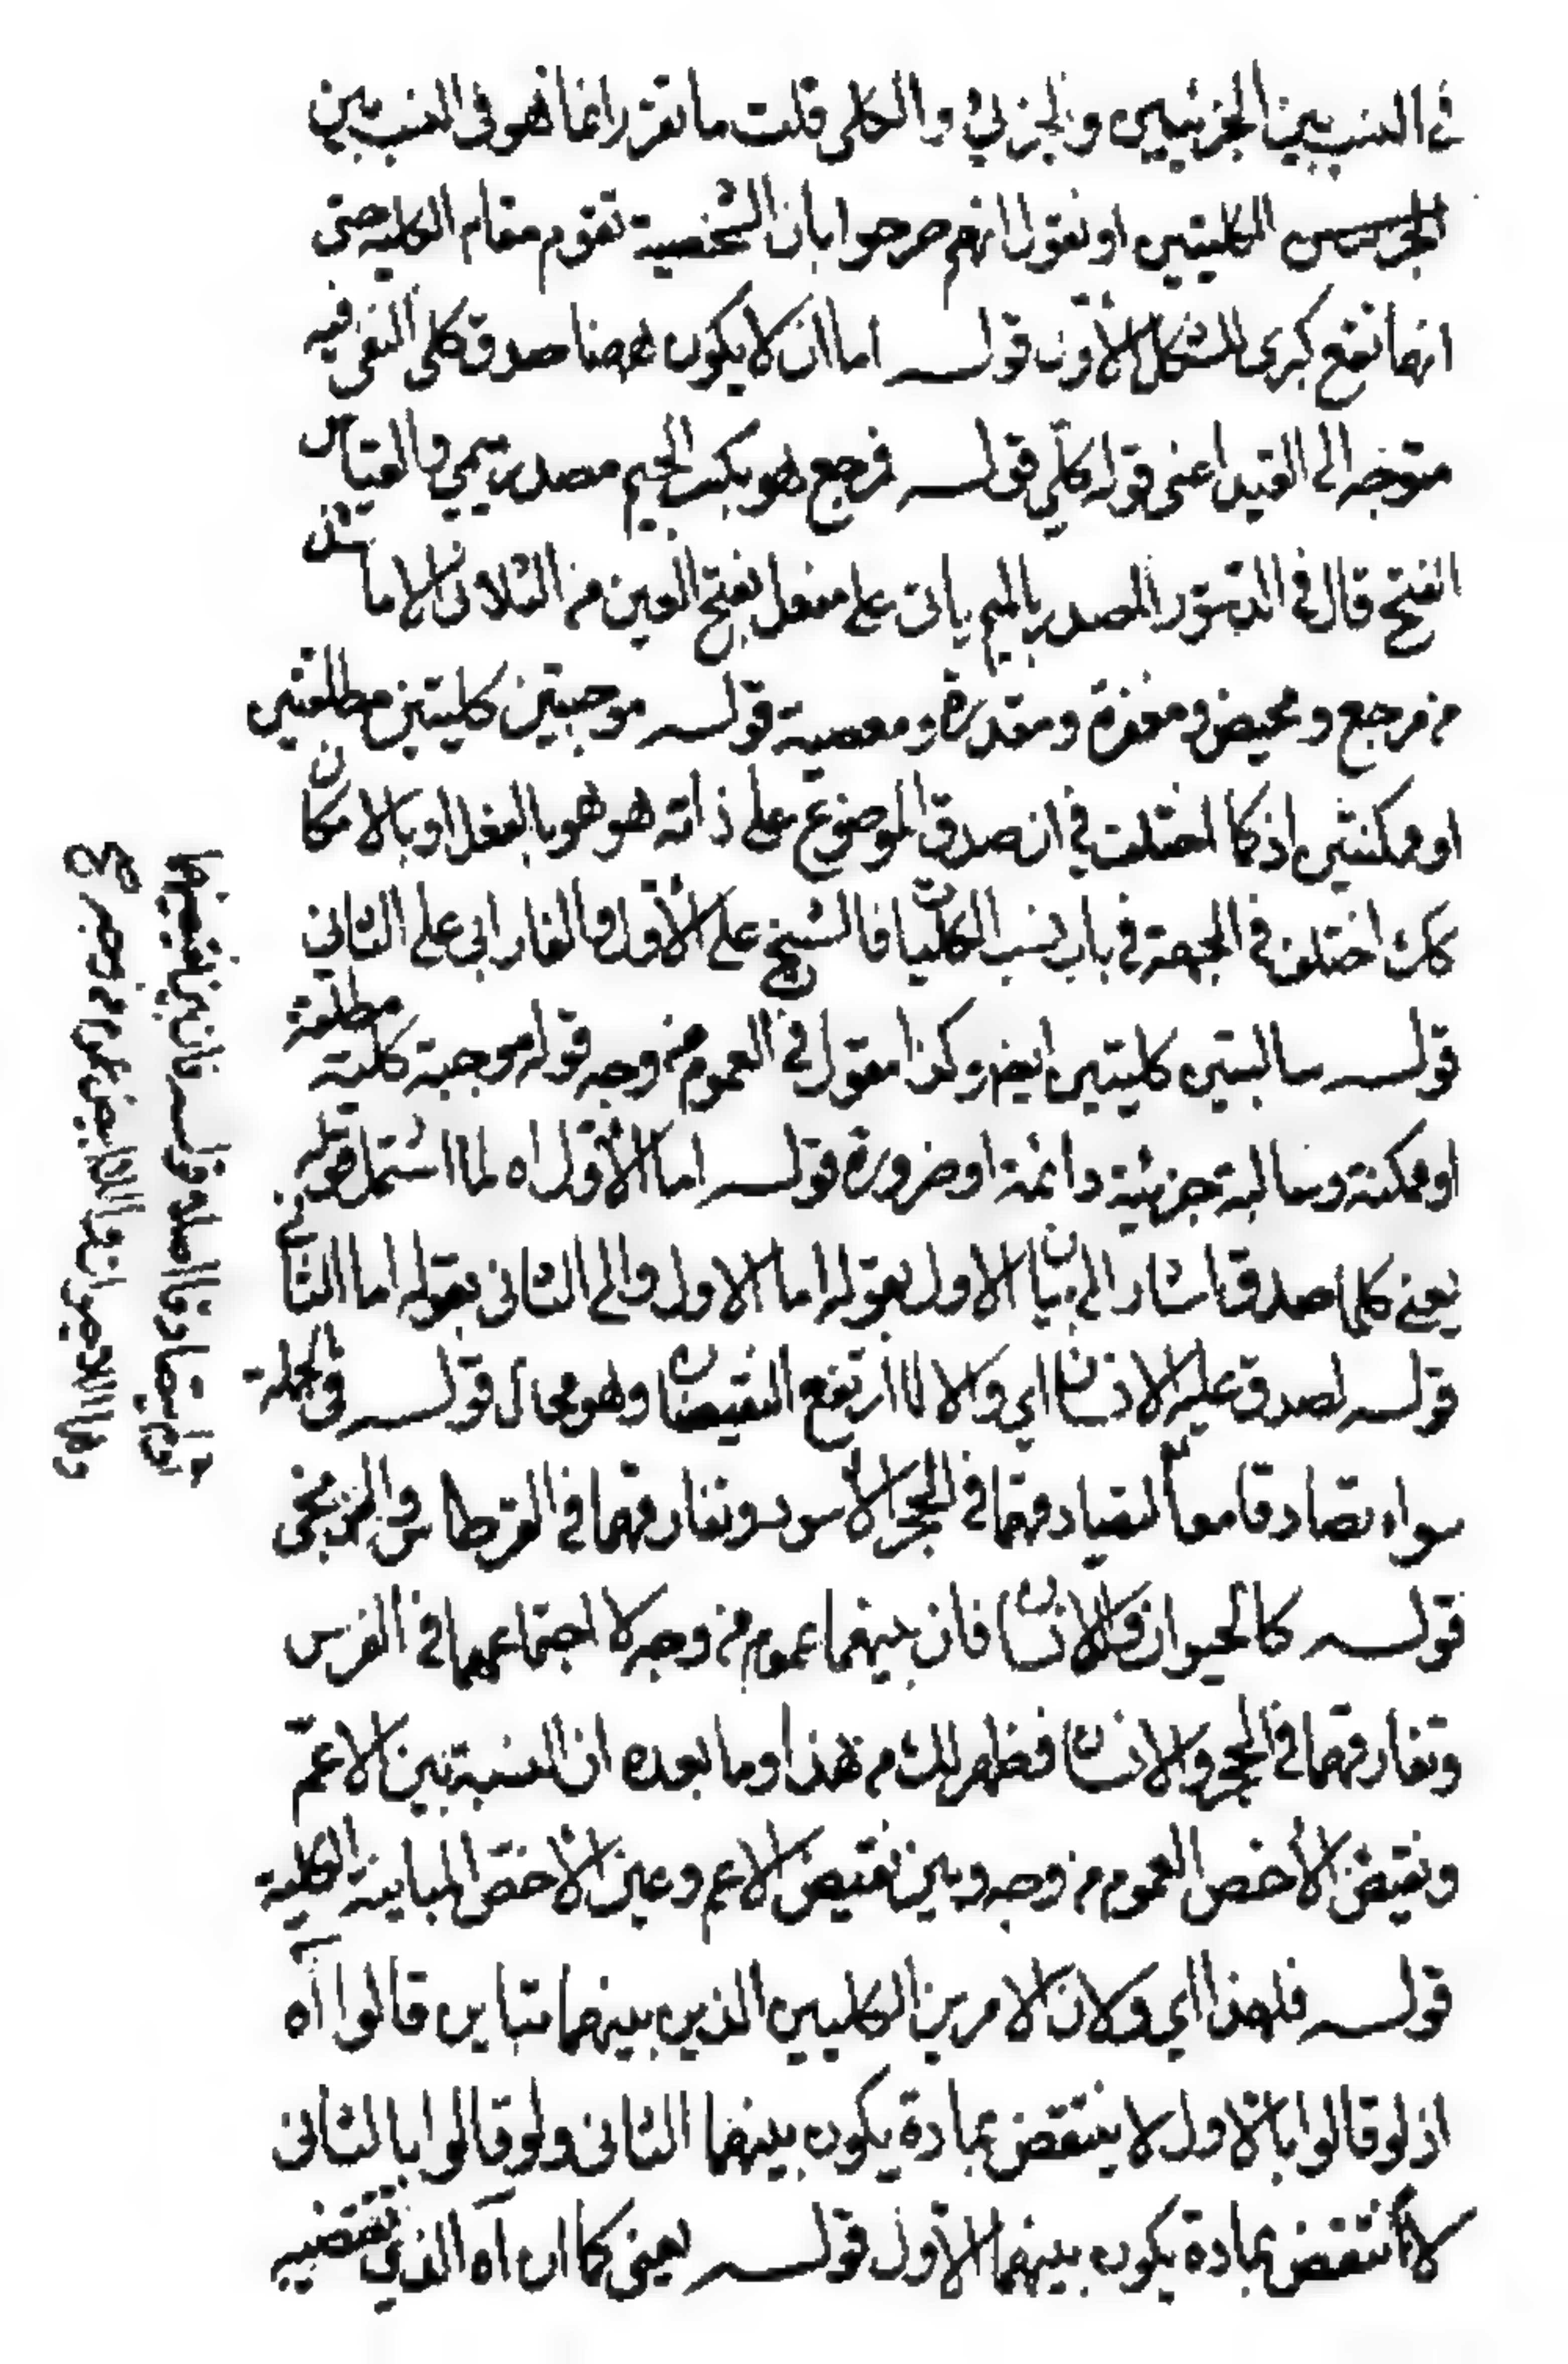 في النسب بين الجزئيين والجزئي والكلي قلت ما تقرر انما هو في النسب بين
الكليتين او نقول انهم صرحوا بان الشخصية تقوم مقام الكلية حتى
انها تقع كبرى للشكل الاول قولـه اما ان لا يكون ههنا صدق كلي النفي فيه
متوجه الى القيد اعني قوله كلي قولـه فمرجع هو بكسر الجيم مصدر ميمي والقياس
الفتح قال في الدستور المصدر بالميم ياتي على مفعل بفتح العين من الثلاثي الا ما شذ
من مرجع ومحيض ومغفرة ومقدرة ومعصية قولـه موجبتين كليتين مطلقتين
او ممكنتين اذ كما اختلف في ان صدق الموضوع على ذاته هو هو بالفعل او بالامكان
كك اختلف في الجهة في باب نسب الكليات فالشيخ على الأول والفارابي على الثاني
قولـه سالبتين كليتين ايضا وكذا مقول في العموم من وجه قوله موجبة كلية مطلقة
او ممكنة وسالبة جزئية دائمة او ضرورة قولـه اما الأول اه لما اشتمل قوله
يعني كلما صدق اشار الى بيان الاول بقوله اما الاول والى الثاني بقوله اما الثاني
قولـه لصدق عليه الانسان اي والا لارتفع النقيضان وهو محال قولـه في الجملة
سواء تصادقا معا كتصادقهما في الحجر الأسود وتفارقهما في القرطاس والزنجي
قولـه كالحيوان واللاانسان فان بينهما عموم من وجه لاجتماعهما في الفرس
وتفارقهما في الحجر والانسان فظهر لك من هذا وما بعده ان النسبة بين الاعم
ونقيض الأخص العموم من وجه وبين نقيض الاعم وعين الأخص المباينة الكلية
قولـه فلهذا اي ولان الامرين الكليين الذين بينهما تباين قالوا آه
اذ لو قالوا بالاول لا ينتقض بمادة يكون بينهما الثاني ولو قالوا بالثاني
لانتقض بمادة يكون بينهما الاول قولـه يعني كما ان آه الذي تقتضيه